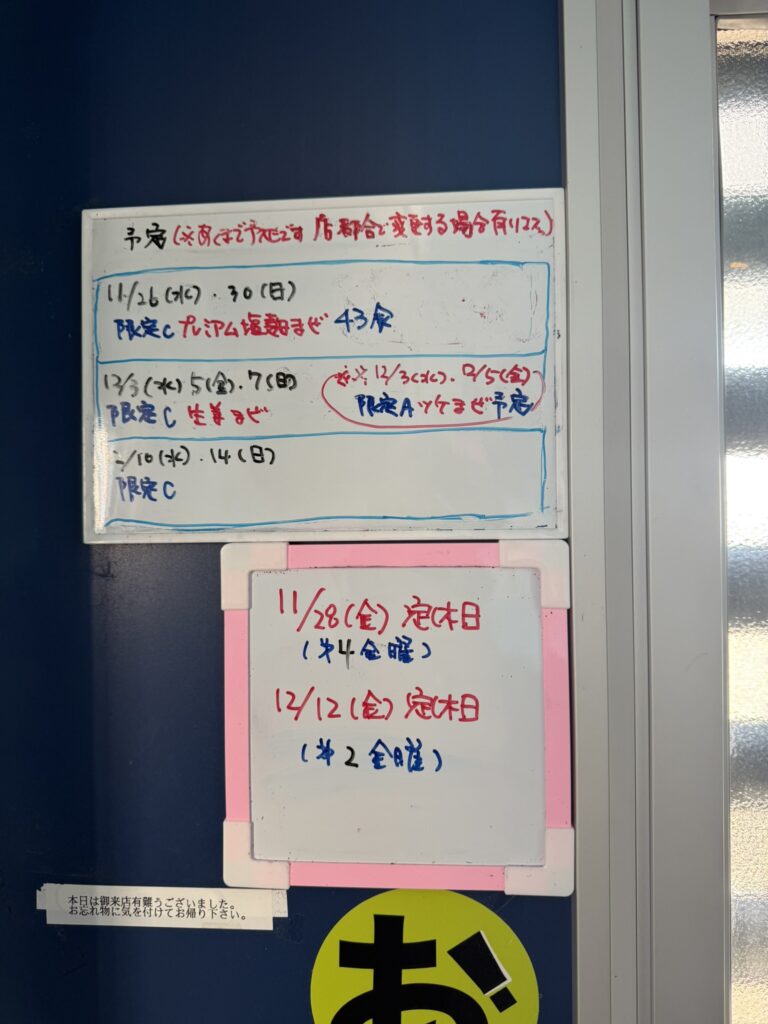 予定(※あくまで予定です 店都合で変更する場合有リマス)
11/26(水)・30(日)
限定C プレミアム塩麹まぜ 43食
12/3(水)5(金)・7(日)
限定C 生姜まぜ
12/3(水)・12/5(金)
限定A ツケまぜ予定
12/10(水)・14(日)
限定C
11/28(金) 定休日
(第4金曜)
12/12(金) 定休日
(第2金曜)
本日は御来店有難うございました。
お忘れ物に気を付けてお帰り下さい。
お!